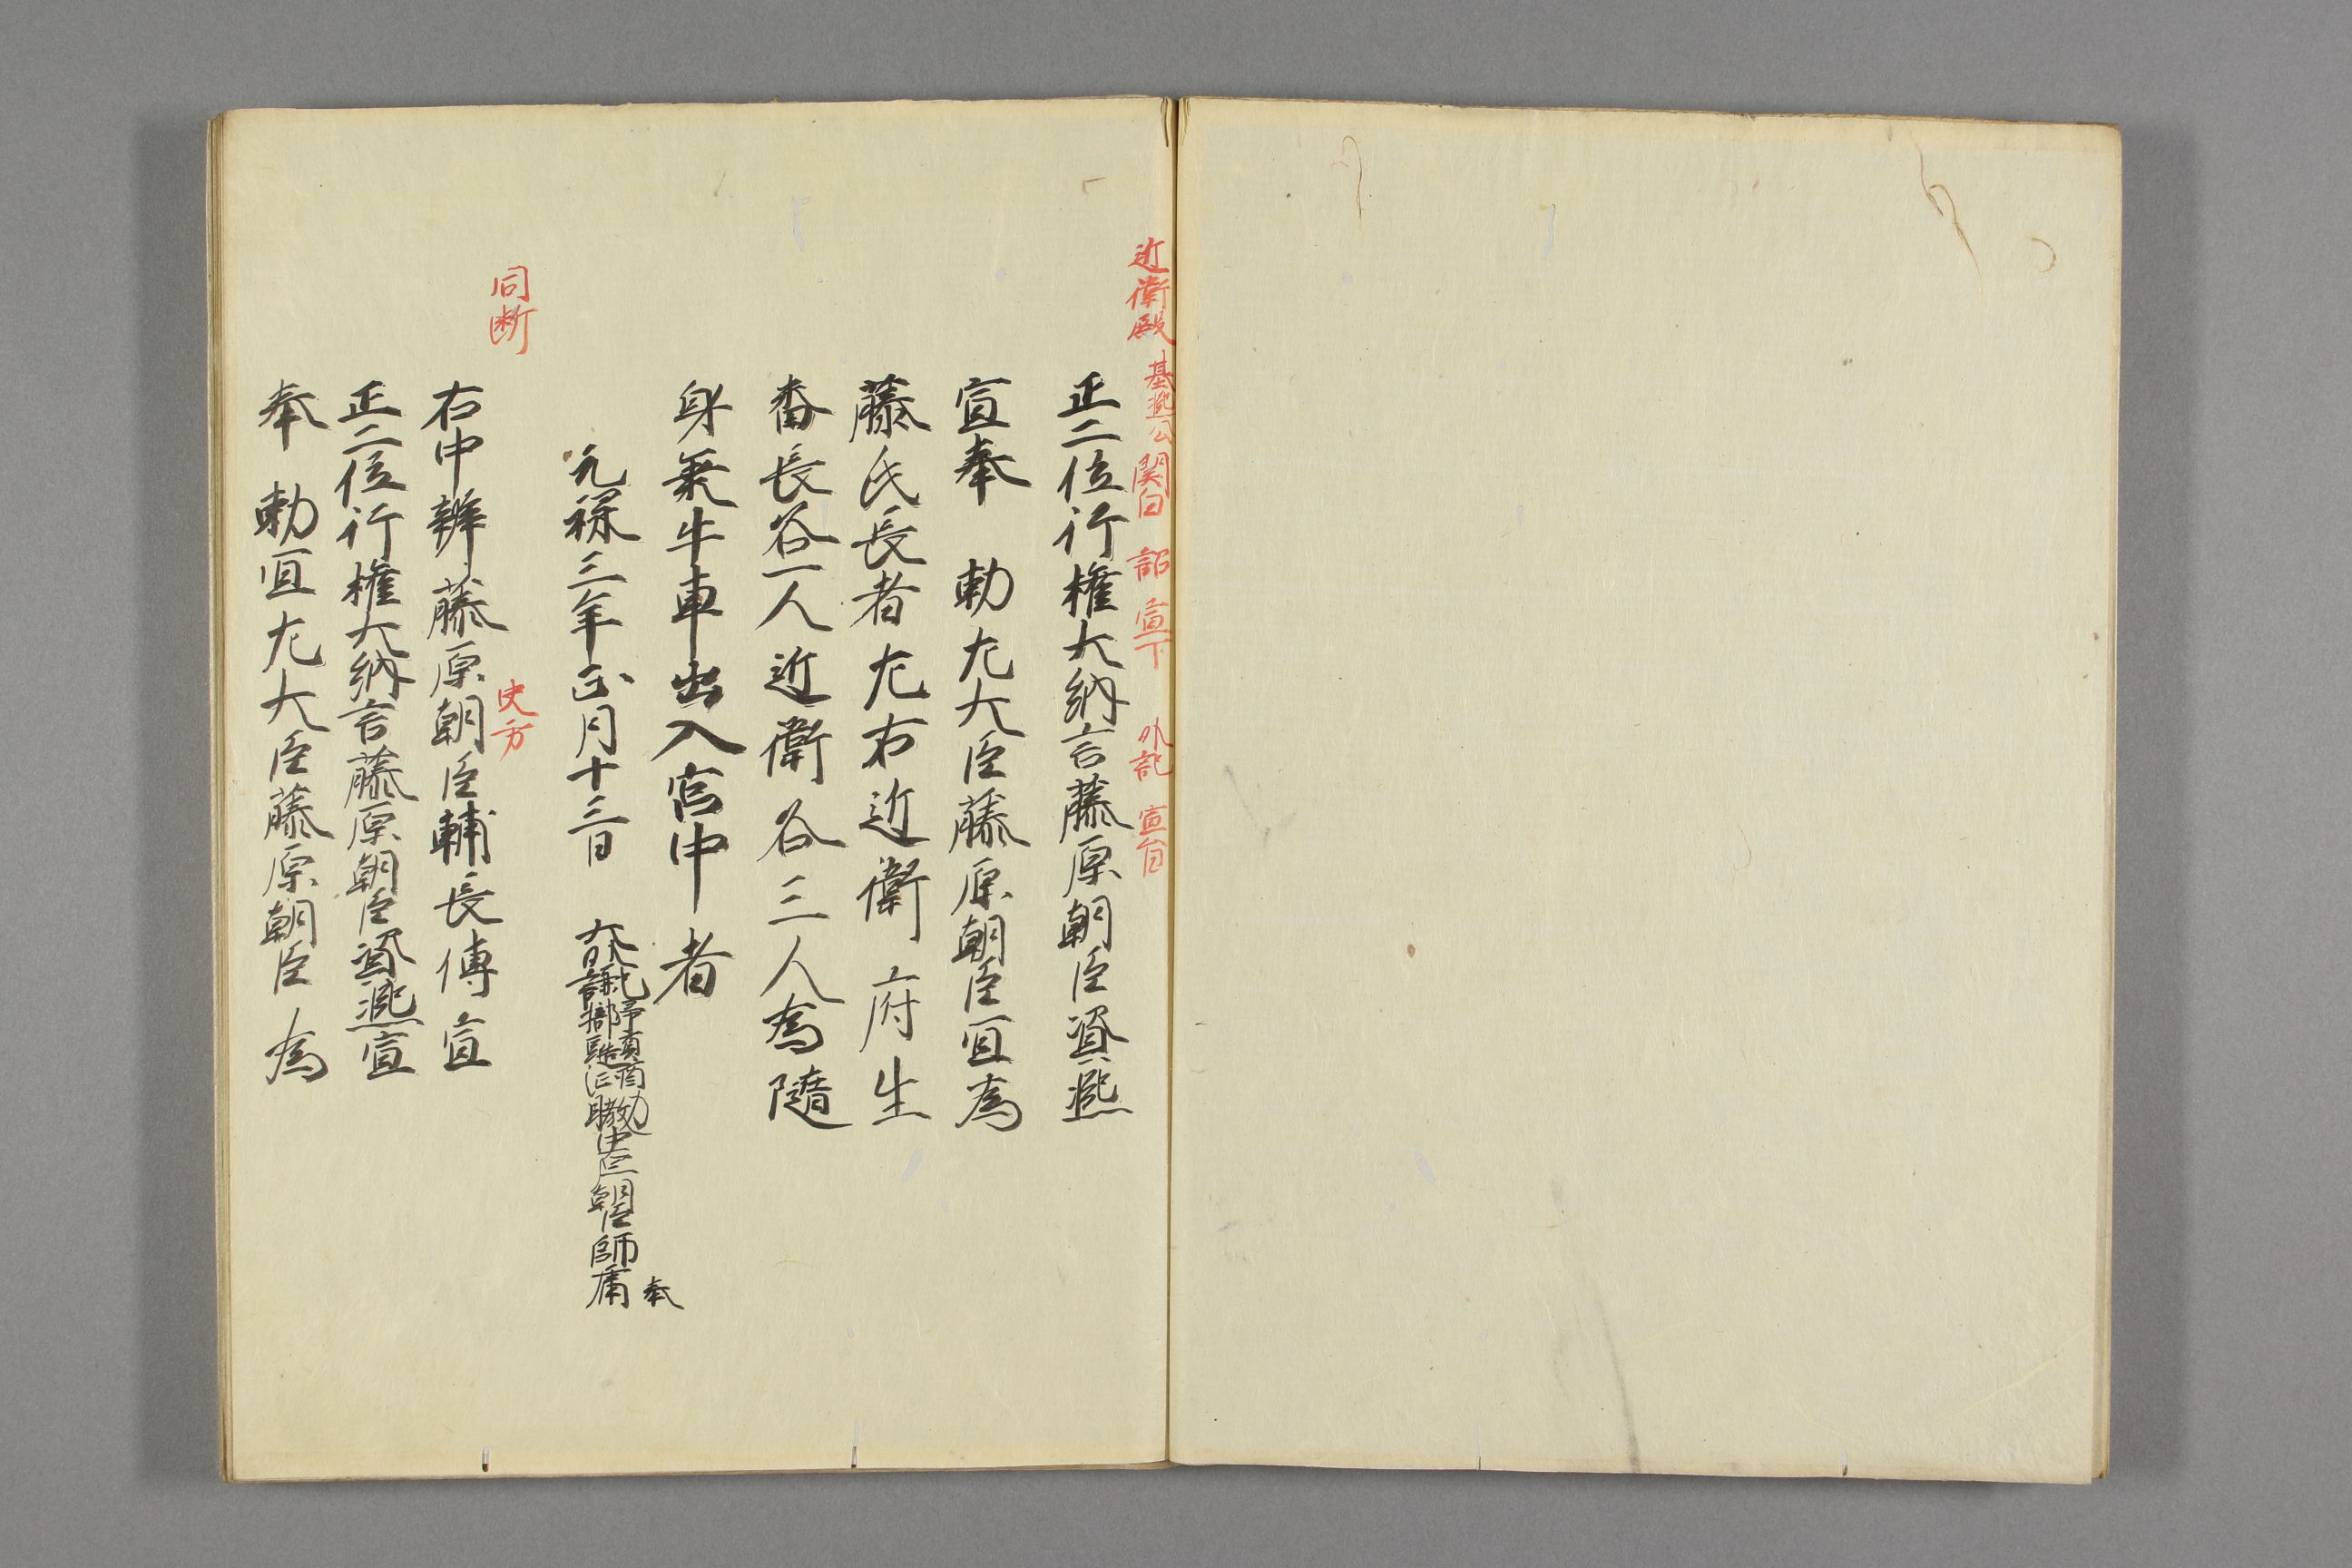 近衛殿 基熈公 関白 詔 宣下 外記 宣旨
正二位行権大納言藤原朝臣資熈
宣奉 勅左大臣藤原朝臣宜為
藤氏長者左右近衛府生
番長各一人近衛各三人為隨
身乗牛車出入宮中者
元禄三年正月十三日 大外記
造酒正
中原朝臣師庸 奉
同断
史方
右中辨藤原朝臣輔長傳宣
正二位行権大納言藤原朝臣資熈宣
奉 勅宜左大臣藤原朝臣為